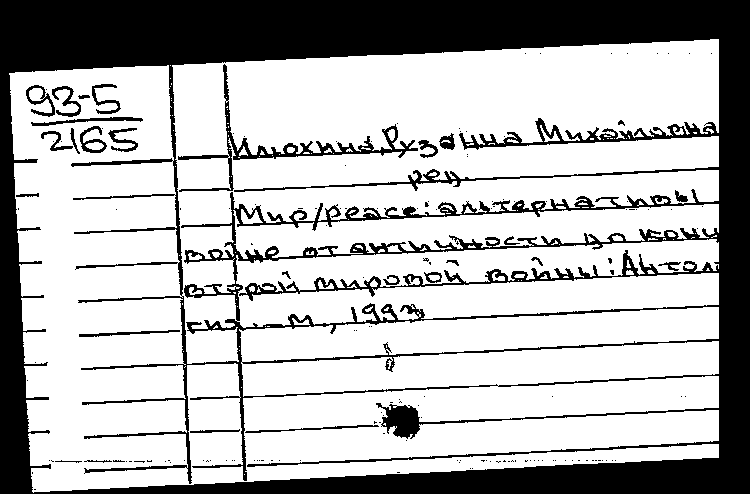 93-5
2165
Илюхина, Рузанна Михайловна
ред.
Мир/peace: альтернативы
войне от античности до конц
второй мировой войны: Антоло
гия. – М., 1993